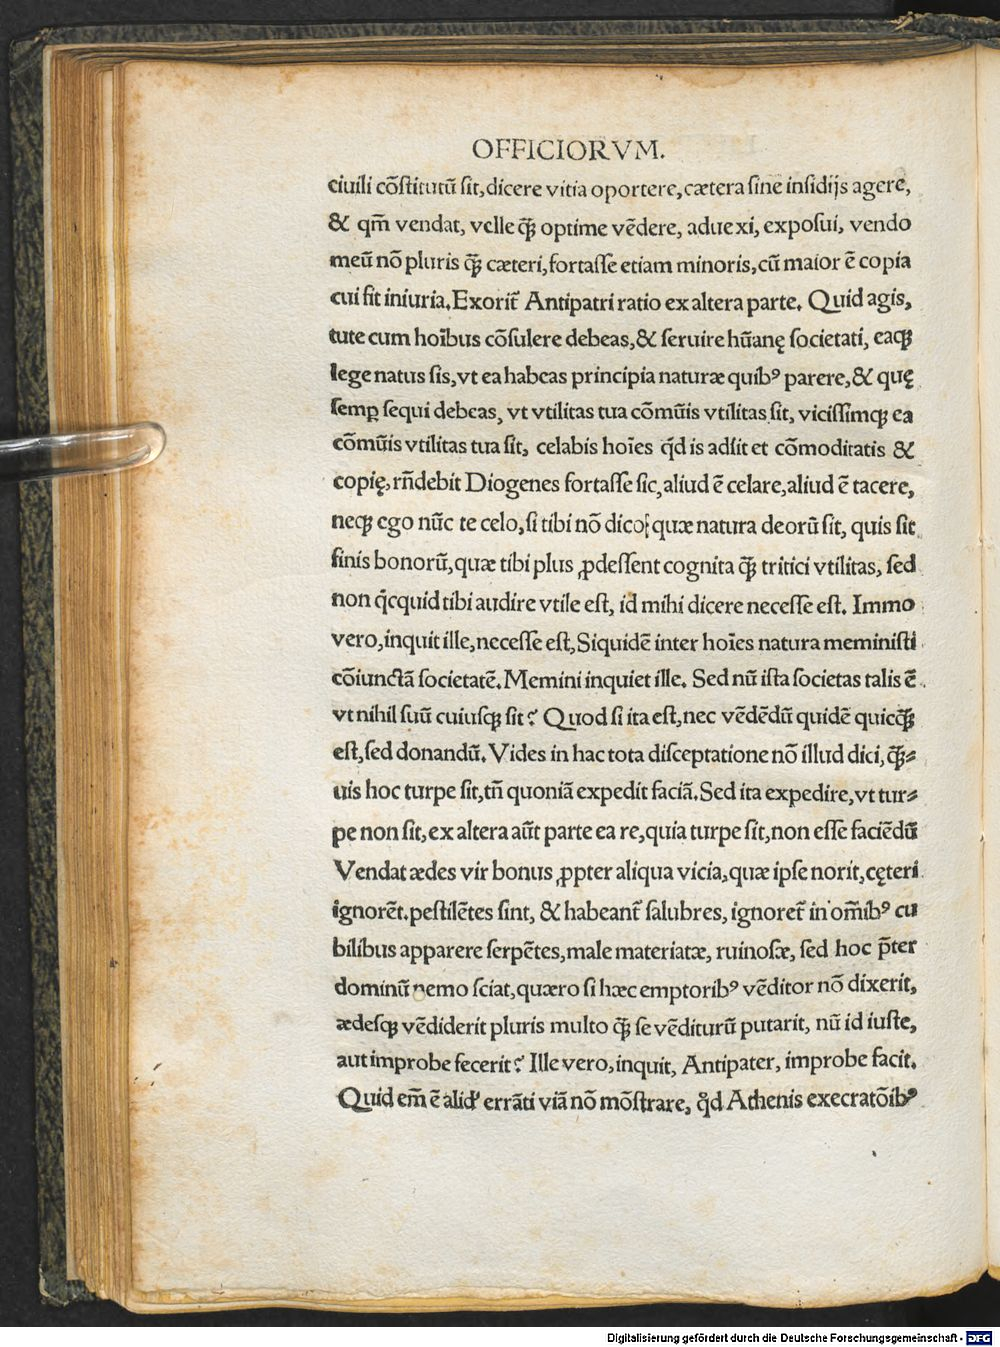 OFFICIORVM.
ciuili cōſtitutū ſit, dicere vitia oportere, cætera ſine inſidijs agere,
& qm̄ vendat, velle q̄ꝫ optime vēdere, adue xi, expoſui, vendo
meū nō pluris q̄ꝫ cæteri, fortaſſe etiam minoris, cū maior ē copia
cui fit iniuria. Exorit᷑ Antipatri ratio ex altera parte. Quid agis,
tute cum hoībus cōſulere debeas, & ſeruire hūanę ſocietati, eaqꝫ
lege natus ſis, vt ea habeas principia naturæ quibꝰ parere, & quę
ſemꝑ ſequi debeas, vt vtilitas tua cōmūis vtilitas ſit, viciſſimqꝫ ea
cōmūis vtilitas tua ſit, celabis hoīes q̇d is adſit et cōmoditatis &
copię, rn̄debit Diogenes fortaſſe ſic, aliud ē celare, aliud ē tacere,
neqꝫ ego nūc te celo, ſi tibi nō dico, quæ natura deorū ſit, quis ſit
finis bonorū, quæ tibi plus ꝓdeſſent cognita q̄ꝫ tritici vtilitas, ſed
non q̇cquid tibi audire vtile eſt, id mihi dicere neceſſe eſt. Immo
vero, inquit ille, neceſſe eſt, Siquidē inter hoīes natura meminiſti
cōiunctā ſocietatē. Memini inquiet ille. Sed nū iſta ſocietas talis ē
vt nihil ſuū cuiuſqꝫ ſit? Quod ſi ita eſt, nec vēdēdū quidē quicq̄ꝫ
eſt, ſed donandū. Vides in hac tota diſceptatione nō illud dici, q̄ꝫ⸗
uis hoc turpe ſit, tn̄ quoniā expedit faciā. Sed ita expedire, vt tur⸗
pe non ſit, ex altera aūt parte ea re, quia turpe ſit, non eſſe faciēdū
Vendat ædes vir bonus ꝓpter aliqua vicia, quæ ipſe norit, cęteri
ignorēt. peſtilētes ſint, & habeant᷑ ſalubres, ignoret᷑ in om̄ibꝰ cu
bilibus apparere ſerpētes, male materiatæ, ruinoſæ, ſed hoc p̄ter
dominū nemo ſciat, quæro ſi hæc emptoribꝰ vēditor nō dixerit,
ædeſqꝫ vēdiderit pluris multo q̄ꝫ ſe vēditurū putarit, nū id iuſte,
aut improbe fecerit? Ille vero, inquit, Antipater, improbe facit.
Quid em̄ ē alid' errāti viā nō mōſtrare, qd̓ Athenis execratōibꝰ
Digitalisierung gefördert durch die Deutsche Forschungsgemeinschaft - DFG